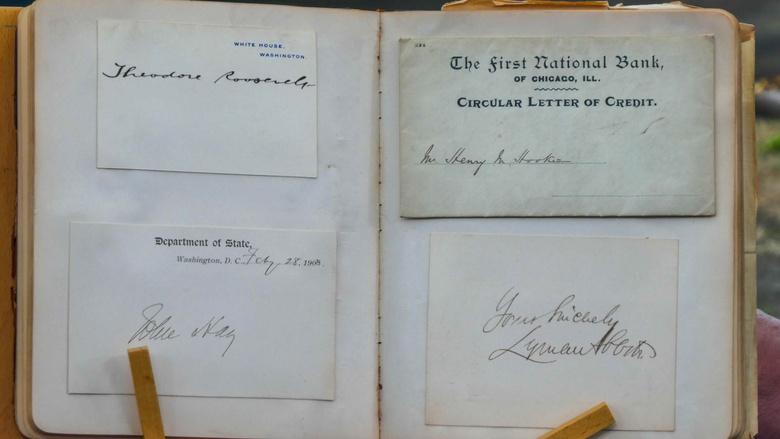 WHITE HOUSE,
WASHINGTON.
Theodore Roosevelt
Department of State,
Washington, D. C., Feby 28, 190
John Hay
The First National Bank,
OF CHICAGO, ILL.
CIRCULAR LETTER OF CREDIT.
Mr Henry M. Hooker
Yours Sincerely
Lyman Abbott